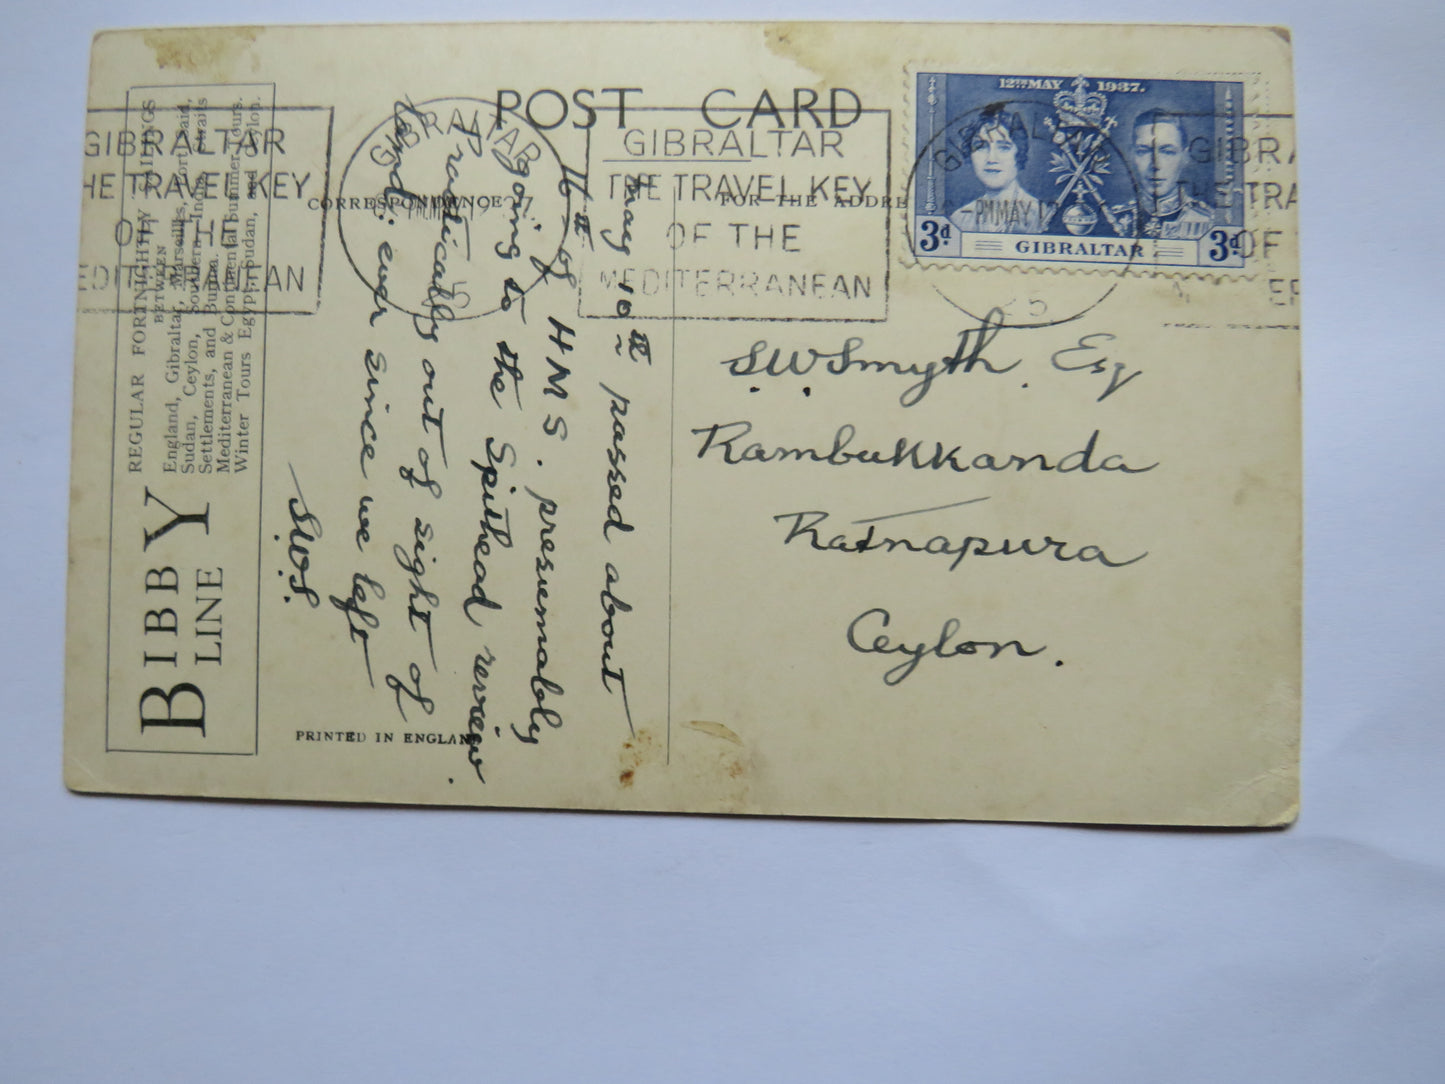 POST CARD
CORRESPONDENCE
FOR THE ADDRE
BIBBY
LINE
REGULAR FORTNIGHTLY SAILINGS
BETWEEN
England, Gibraltar, Marseilles, Port Said,
Sudan, Ceylon, Southern India, Straits
Settlements, and Burma.
Mediterranean & Continental Summer Tours.
Winter Tours Egypt, Sudan, and Ceylon.
PRINTED IN ENGLAND
May 10th passed about
16 of HMS. presumably
going to the Spithead review.
Practically out of sight of
land ever since we left
S.W.S.
S.W Smyth. Esq
Rambukkanda
Ratnapura
Ceylon.
12TH MAY 1937.
3d. GIBRALTAR 3d.
GIBRALTAR
-PM MAY 1
25
GIBRALTAR
THE TRAVEL KEY
OF THE
MEDITERRANEAN
GIBRALTAR
25
GIBRALTAR
HE TRAVEL KEY
OF THE
EDITERRANEAN
GIBRA
THE TRA
OF
ER